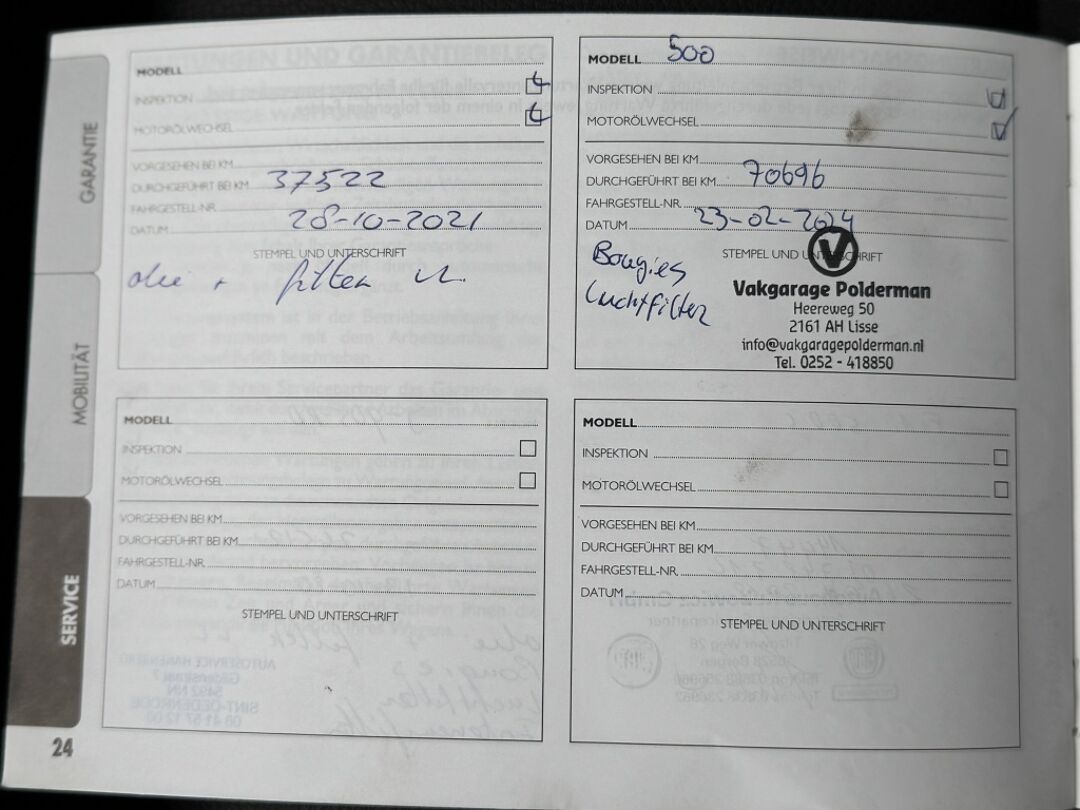 GARANTIE
MOBILITÄT
SERVICE
MODELL
INSPEKTION
MOTORÖLWECHSEL
VORGESEHEN BEI KM
DURCHGEFÜHRT BEI KM 37522
FAHRGESTELL-NR.
DATUM 28-10-2021
STEMPEL UND UNTERSCHRIFT
olie + filter
MODELL 500
INSPEKTION
MOTORÖLWECHSEL
VORGESEHEN BEI KM
DURCHGEFÜHRT BEI KM 70696
FAHRGESTELL-NR.
DATUM 23-02-2024
STEMPEL UND UNTERSCHRIFT
Bougies
Luchtfilter
V
Vakgarage Polderman
Heereweg 50
2161 AH Lisse
info@vakgaragepolderman.nl
Tel. 0252 - 418850
MODELL
INSPEKTION
MOTORÖLWECHSEL
VORGESEHEN BEI KM
DURCHGEFÜHRT BEI KM
FAHRGESTELL-NR.
DATUM
STEMPEL UND UNTERSCHRIFT
MODELL
INSPEKTION
MOTORÖLWECHSEL
VORGESEHEN BEI KM
DURCHGEFÜHRT BEI KM
FAHRGESTELL-NR.
DATUM
STEMPEL UND UNTERSCHRIFT
24